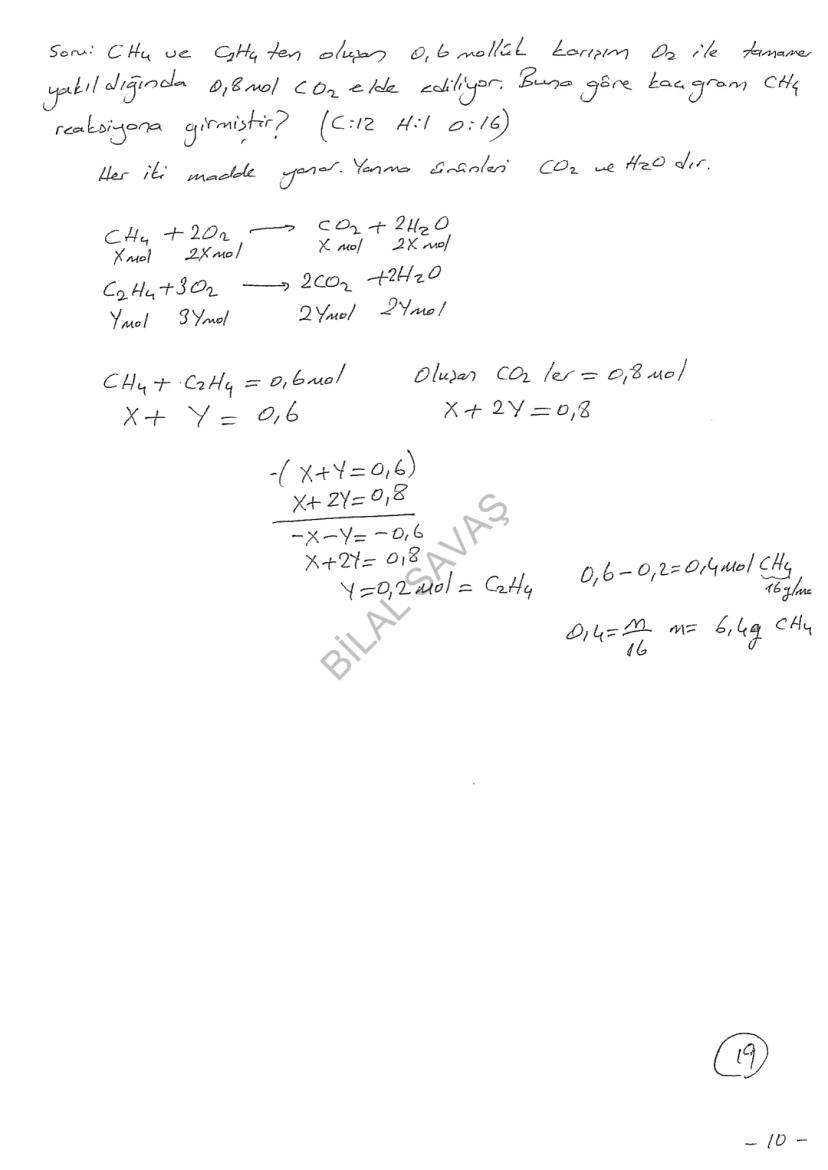 Soru: CH4 ve C2H4 ten oluşan 0,6 mollük karışım O2 ile tamame
yakıldığında 0,8 mol CO2 elde ediliyor. Buna göre kaç gram CH4
reaksiyona girmiştir? (C:12 H:1 O:16)
Her iki madde yanar. Yanma ürünleri CO2 ve H2O dır.
CH4 + 2O2 → CO2 + 2H2O
X mol 2X mol X mol 2X mol
C2H4 + 3O2 → 2CO2 + 2H2O
Y mol 3Y mol 2Y mol 2Y mol
CH4 + C2H4 = 0,6 mol Oluşan CO2 ler = 0,8 mol
X + Y = 0,6 X + 2Y = 0,8
-( X+Y=0,6)
X+ 2Y=0,8
-X-Y= -0,6
X+2Y= 0,8
Y=0,2 mol = C2H4 0,6-0,2=0,4 mol CH4
16 g/mo
0,4= m/16 m= 6,4g CH4
BİLAL SAVAŞ
19
- 10 -